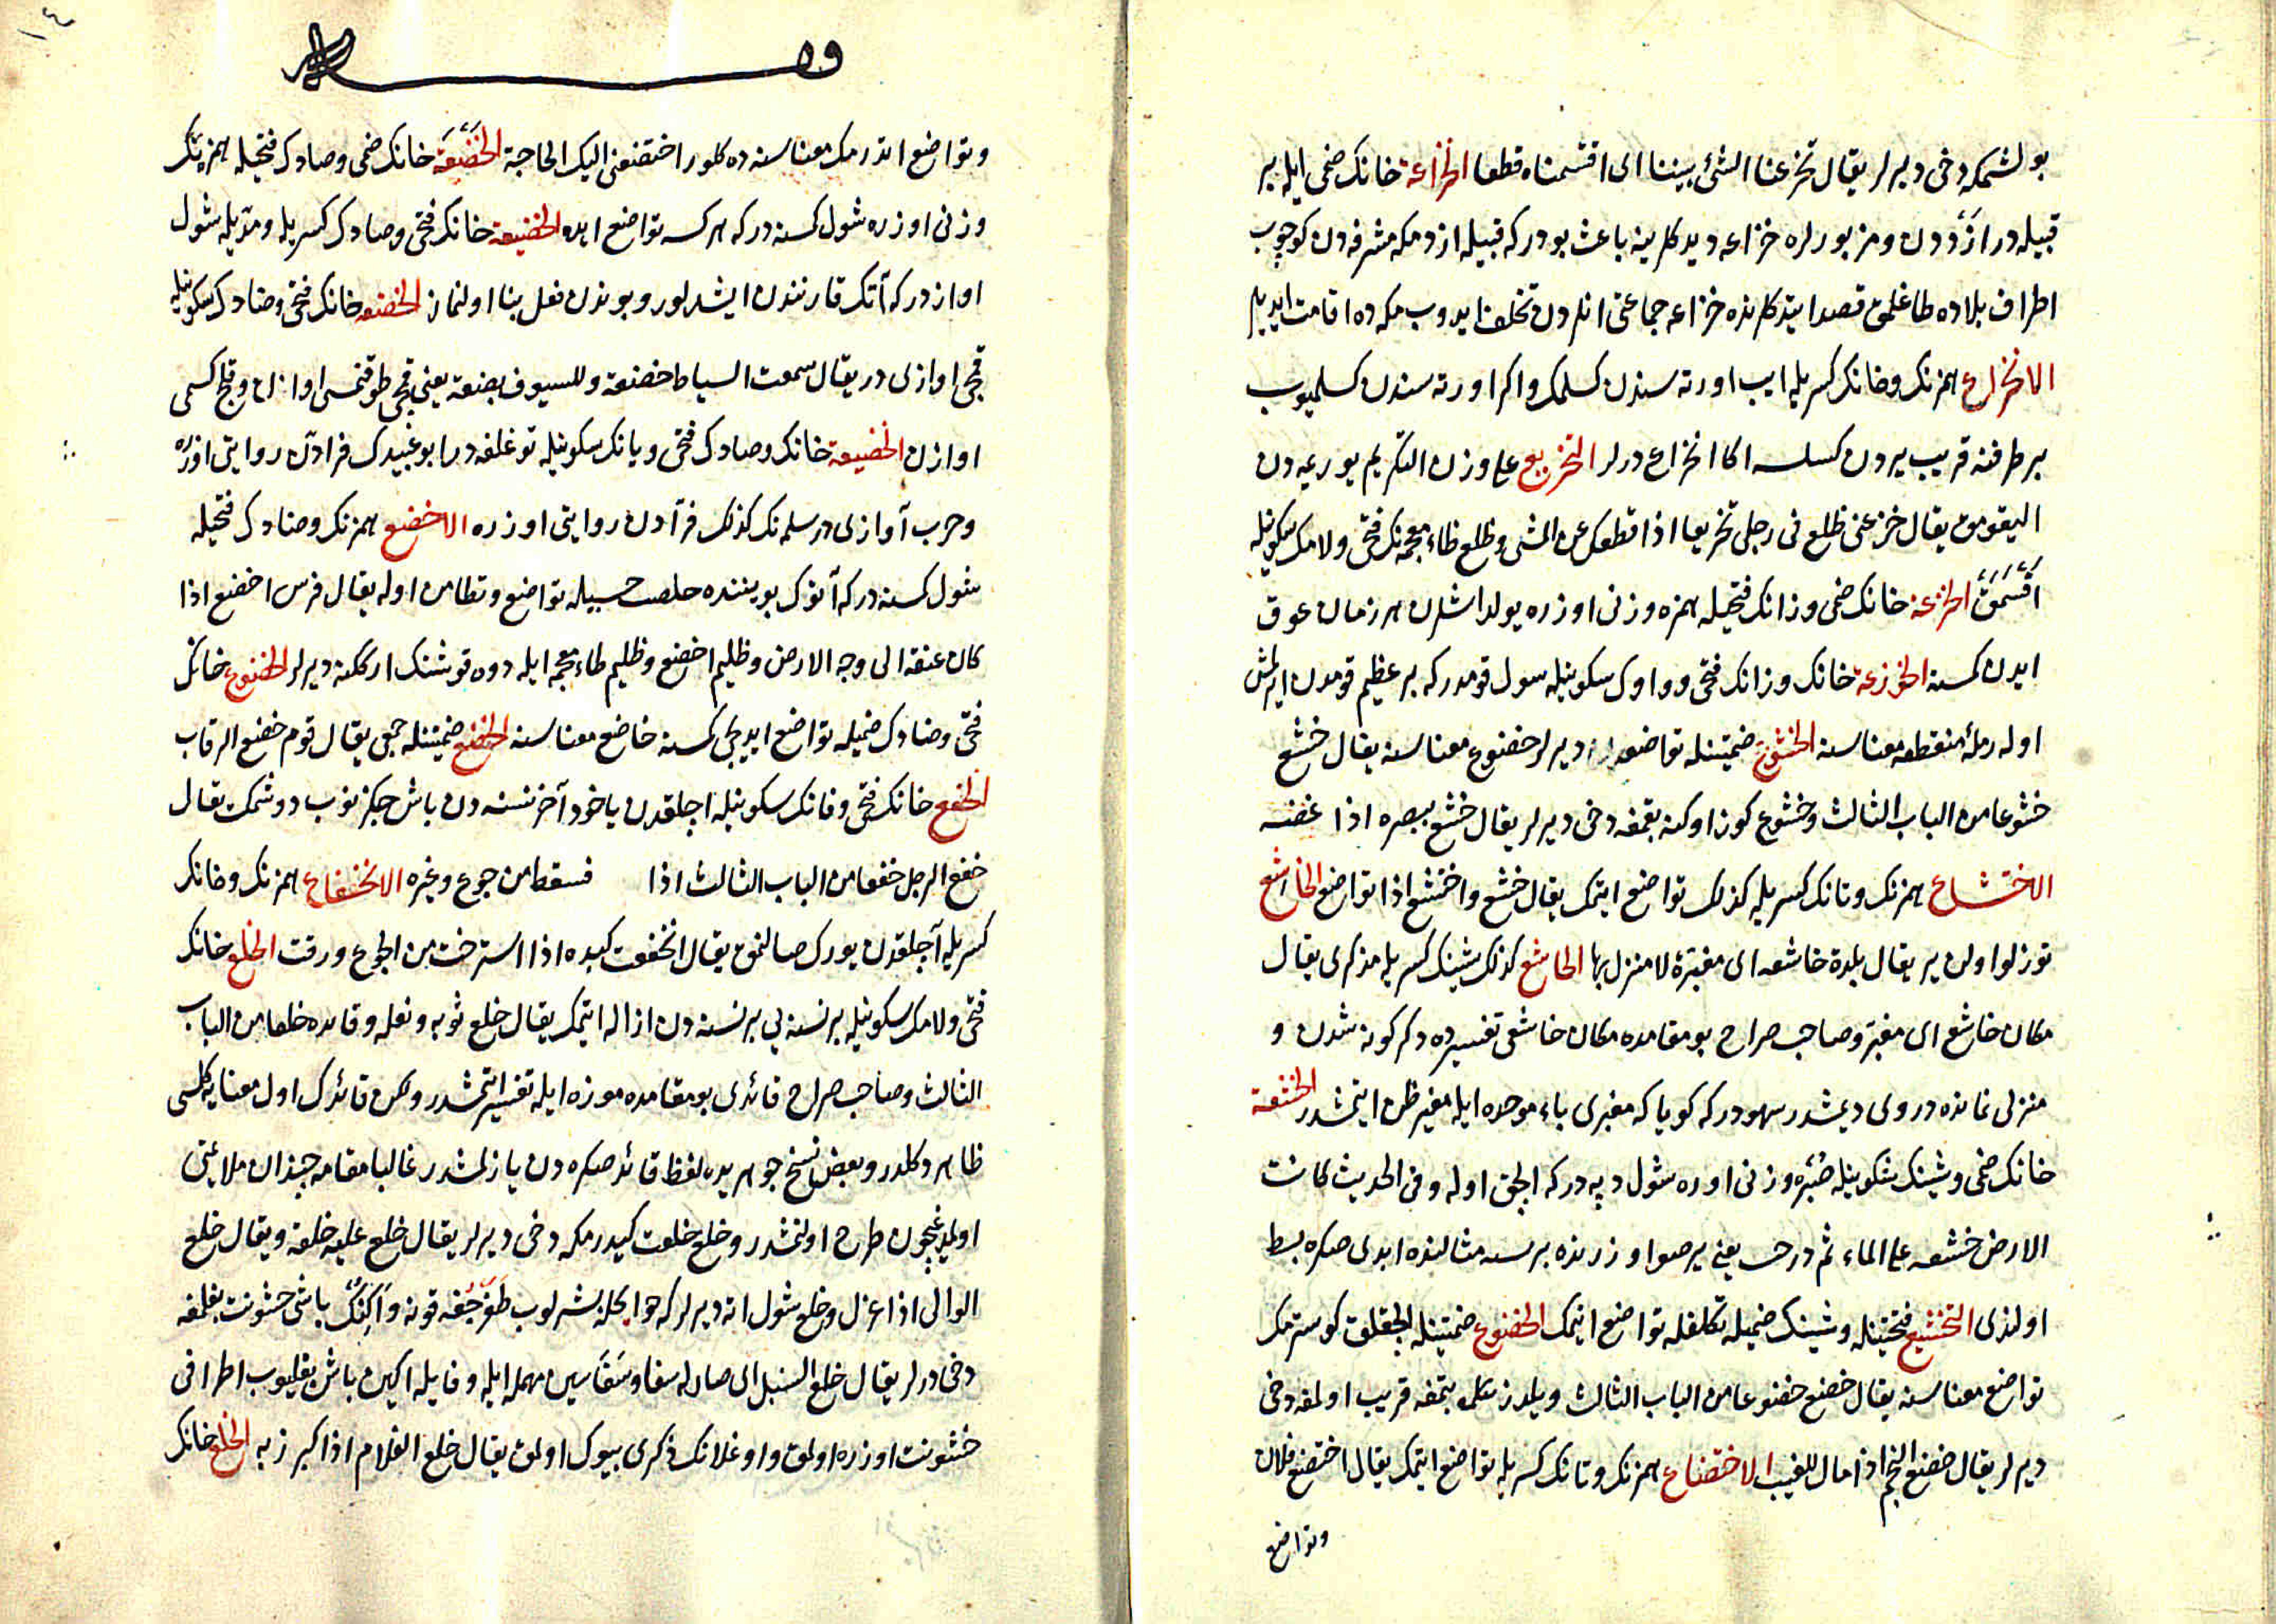 بولشمكه دخى ديرلر يقال تخزعنا الشئ بيننا اى اقتسمناه قطعا الخزاعة خانك ضمى ايله بر
قبيله در ازددن ومزبورلره خزاعه ديدكلرينه باعث بودركه قبيله ازد مكه مشرفه دن كوچوب
اطراف بلاده طاغلمق قصد ايتدكلرنده خزاعه جماعتى انلردن تخلف ايدوب مكه ده اقامت ايديلر
الانخزاع همزنك وخانك كسريله ايب اورته سندن كسلمك واكر اورته سندن كسلميوب
بر طرفنه قريب يردن كسلسه اكا انخزاع درلر التخزيع على وزن التكريم يوريمه دن
اليقومق يقال خزعنى ظلع فى رجلى تخزيعا اذا قطعك عن المشى وظلع ظاء معجمه نك فتحى ولامك سكونيله
اقسمق الخزعة خانك ضمى وزانك فتحيله همزه وزنى اوزره يولداشلرن هر زمان عوق
ايدن كمسنه الخوزعة خانك وزانك فتحى وواوك سكونيله شول قومدركه بر عظيم قومدن ايرلمش
اوله رملهٔ منقطعه معناسنه الخشوع ضمتينله تواضعه ديرلر خضوع معناسنه يقال خشع
خشوعا من الباب الثالث وخشوع كوز اوكنه بقمغه دخى ديرلر يقال خشع ببصره اذا غضه
الاختشاع همزنك وتانك كسريله كذلك تواضع ايتمك يقال خشع واختشع اذا تواضع الخاشع
توزلو اولن ير يقال بلدة خاشعه اى مغبرة لا منزل بها الخاشع كذلك شينك كسريله مذكرى يقال
مكان خاشع اى مغبر وصاحب صراح بو مقامده مكان خاشعى تفسيرده دكركونه شدن و
منزلى نمانده دروى ديمشدر سهودركه كويا كه مغبرى باء موحده ايله مغير ظن ايتمشدر الخشعة
خانك ضمى وشينك سكونيله صبره وزنى اوزره شول دپه دركه الچق اوله وفى الحديث كانت
الارض خشعه على الماء ثم دحيت يعنى ير صو اوزرنده بر دپه مثالنده ايدى صكره بسط
اولندى التخشع فتحتينله وشينك ضميله تكلفله تواضع ايتمك الخضوع ضمتينله الچقلق كوسترمك
تواضع معناسنه يقال خضع خضوعا من الباب الثالث ويلدز طولمغه قريب اولمغه دخى
ديرلر يقال خضع النجم اذا مال للغيب الاختضاع همزنك وتانك كسريله تواضع ايتمك يقال اختضع فلان
وتواضع
١٤
وتواضع اتدرمك معناسنه ده كلور اختضعنى اليك الحاجة الخضعة خانك ضمى وضادك فتحيله همزه نك
وزنى اوزره شول كمسنه دركه هركسه تواضع ايده الخضيعة خانك فتحى وضادك كسريله ومديله شول
اوازدركه آتك قارنندن ايشدلور وبوندن فعل بنا اولنماز الخضعه خانك فتحى وضادك سكونيله
قمچى اوازى در يقال سمعت السياط خضعة وللسيوف بضعة يعنى قمچى طوقنمسى اوازن وقلج كسمى
اوازن الخضيعة خانك وضادك فتحى ويانك سكونيله توغلغه در ابو عبيدك فرادن روايتى اوزره
وحرب آوازى در سلمه نك كذلك فرآدن روايتى اوزره الاخضع همزنك وضادك فتحيله
شول كمسنه دركه آنوك بويننده خلقت حسبيله تواضع وتطامن اوله يقال فرس اخضع اذا
كان عنقه الى وجه الارض وظليم اخضع وظليم ظاء معجمه ايله دوه قوشنك ارككنه ديرلر الخضوع خانك
فتحى وضادك ضميله تواضع ايديجى كمسنه خاضع معناسنه الخضع ضمتينله جمعى يقال قوم خضع الرقاب
الخفع خانك فتحى وفانك سكونيله اجلقدن ياخود آخر نسنه دن باش چكزنوب دوشمك يقال
خفع الرجل خفعا من الباب الثالث اذا فسقط من جوع وغيره الانخفاع همزنك وخانك
كسريله آجلقدن يورك صالنمق يقال انخفعت كبده اذا استرخت من الجوع ورقت الخلع خانك
فتحى ولامك سكونيله بر نسنه يى بر نسنه دن ازاله ايتمك يقال خلع ثوبه ونعله وقائده خلعا من الباب
الثالث وصاحب صراح قائدى بو مقامده موزه ايله تفسير ايتمشدر ولكن قائدك اول معنايه كلمسى
ظاهر دكلدر وبعض نسخ جوهريده لفظ قائد صكره دن يازلمشدر غالبا مقامه چندان ملايمتى
اولمديغيچون طرح اولنمشدر وخلع خلعت كيدرمكه دخى ديرلر يقال خلع عليه خلعة ويقال خلع
الوالى اذا عزل وخلع شول اته ديرلركه حوايجله بشرلوب طغرجغه قونه واكنك باشى خشونت بغلمغه
دخى درلر يقال خلع السنبل اى صار له سفا وسفا سين مهمله ايله وفايله اكين باش بغليوب اطرافى
خشونت اوزره اولمق واوغلانك ذكرى بيوك اولمق يقال خلع الغلام اذا كبر زبه الخلع خانك